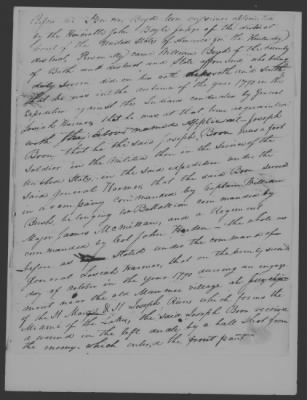 Before me Be[n]
by the Honorable John Boyle judge of the district
court of the United States of America for the Kentucky
district, Personally came William Boyd of the County
of Bath and district and State aforesaid who being
duly Sworn did on his oath
that he was in the autumn of the year 1790 on the
Expedition against the Indians under of General
Josiah Harmar that he was at that time acquainted
with the above named applicant Joseph
Boon, that he the said Joseph Boon was a foot
Soldier in the Militia then in the Service of the
United States, in the said expedition under the
said General Harmar that the said Boon served
in a company commanded by Captain William
Bush, belonging to Battalion commanded by
Major James McMillian, and a Regiment
commanded by Col John Hardin the whole as
before as stated under the command of
General Josiah Harmar, that on the twenty second
day of October in the year 1790 during an engage
ment near the old Maumee village at
of the St Marys & St Joseph Rivers which forms the
Miami of the Lakes, the said Joseph Boon received
a wound in the left ancle by a ball Shot from
the enemy which entered the front part